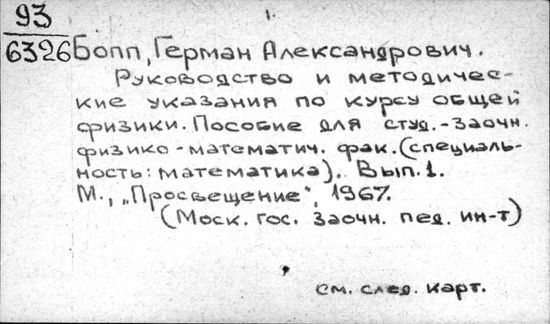 1.
93
6326
Бопп, Герман Александрович.
Руководство и методичес-
кие указания по курсу общей
физики. Пособие для студ.-заочн.
физико-математич. фак. (специаль-
ность: математика). Вып. 1.
М., „Просвещение", 1967.
(Моск. гос. заочн. пед. ин-т)
см. след. карт.